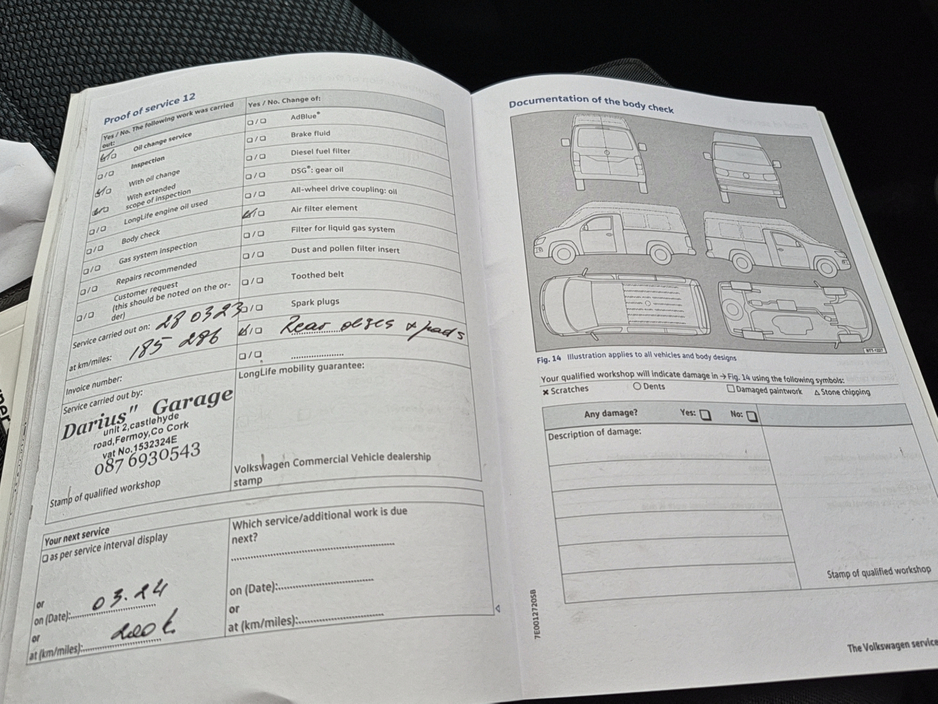 Proof of service 12
Yes / No. The following work was carried out:
Oil change service
Inspection
With oil change
With extended scope of inspection
LongLife engine oil used
Body check
Gas system inspection
Repairs recommended
Customer request
(this should be noted on the or-
der)
Service carried out on: 28 03 23
at km/miles: 185 286
Invoice number:
Service carried out by:
Darius" Garage
unit 2,castlehyde
road,Fermoy,Co Cork
vat No.1532324E
087 6930543
Stamp of qualified workshop
Yes / No. Change of:
AdBlue®
Brake fluid
Diesel fuel filter
DSG®: gear oil
All-wheel drive coupling: oil
Air filter element
Filter for liquid gas system
Dust and pollen filter insert
Toothed belt
Spark plugs
Rear discs + pads
LongLife mobility guarantee:
Volkswagen Commercial Vehicle dealership
stamp
Your next service
as per service interval display
or
on (Date): 03.24
or
at (km/miles): 200 k
Which service/additional work is due
next?
on (Date):
or
at (km/miles):
Documentation of the body check
Fig. 14 Illustration applies to all vehicles and body designs
Your qualified workshop will indicate damage in → Fig. 14 using the following symbols:
× Scratches ○ Dents □ Damaged paintwork △ Stone chipping
Any damage? Yes: □ No: □
Description of damage:
Stamp of qualified workshop
7E0012720SB
The Volkswagen service